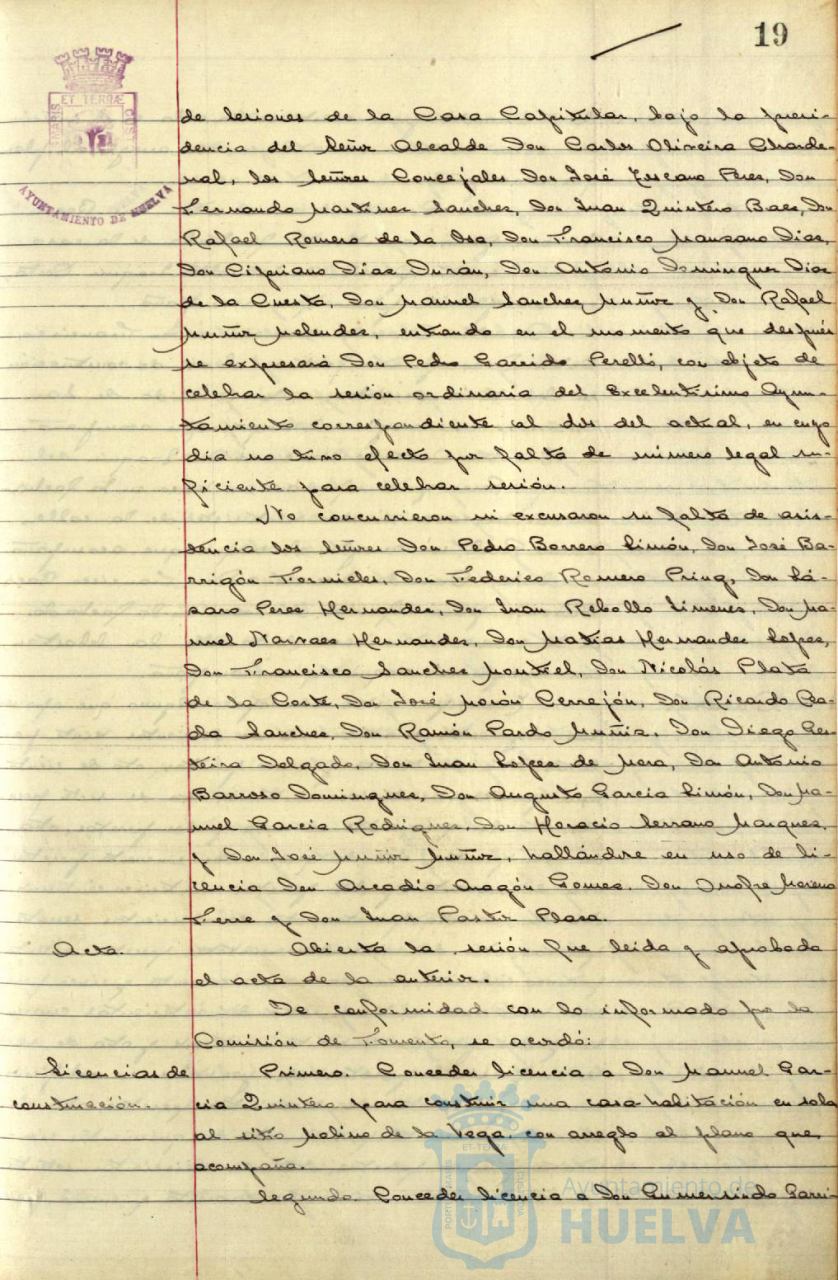 19
ET TERRÆ
MARIS
CUST
AYUNTAMIENTO DE HUELVA
de sesiones de la Casa Capitular, bajo la presi-
dencia del Señor Alcalde Don Carlos Oliveira Charde-
nal, los señores Concejales Don José Toscano Perez, Don
Fernando Martinez Sanchez, Don Juan Quintero Baez, Don
Rafael Romero de la Osa, Don Francisco Manzano Diaz,
Don Cipriano Diaz Durán, Don Antonio Dominguez Diaz
de la Cuesta, Don Manuel Sanchez Muñoz y Don Rafael
Muñoz Melendez, entrando en el momento que después
se expresará Don Pedro Garrido Perelló, con objeto de
celebrar la sesión ordinaria del Excelentísimo Ayun-
tamiento correspondiente al dos del actual, en cuyo
dia no tuvo efecto por falta de número legal su-
ficiente para celebrar sesión.
No concurrieron ni excusaron su falta de asis-
tencia los señores Don Pedro Borrero Limón, Don José Ba-
rrigón Fornieles, Don Federico Romero Pring, Don Lá-
zaro Perez Hernandez, Don Juan Rebollo Jimenez, Don Ma-
nuel Narvaez Hernandez, Don Matias Hernandez Lopez,
Don Francisco Sanchez Montiel, Don Nicolás Plata
de la Corte, Don José Morón Cerrejón, Don Ricardo Ba-
da Sanchez, Don Ramón Pardo Muñiz, Don Diego Ges-
teira Delgado, Don Juan Lopez de Mora, Don Antonio
Barroso Dominguez, Don Augusto Garcia Limón, Don Ma-
nuel Garcia Rodriguez, Don Horacio Serrano Marquez,
y Don José Muñoz Muñoz, hallándose en uso de li-
cencia Don Arcadio Aragón Gomez, Don Onofre Moreno
Ferre y Don Juan Pastor Plaza.
Acta. Abierta la sesión fue leida y aprobada
el acta de la anterior.
De conformidad con lo informado por la
Comisión de Fomento, se acordó:
Licencias de Primero. Conceder licencia a Don Manuel Gar-
construcción. cia Quintero para construir una casa habitación en solar
al sitio Molino de la Vega, con arreglo al plano que
acompaña.
Segundo. Conceder licencia a Don Gumersindo Garri-
Ayuntamiento de
HUELVA